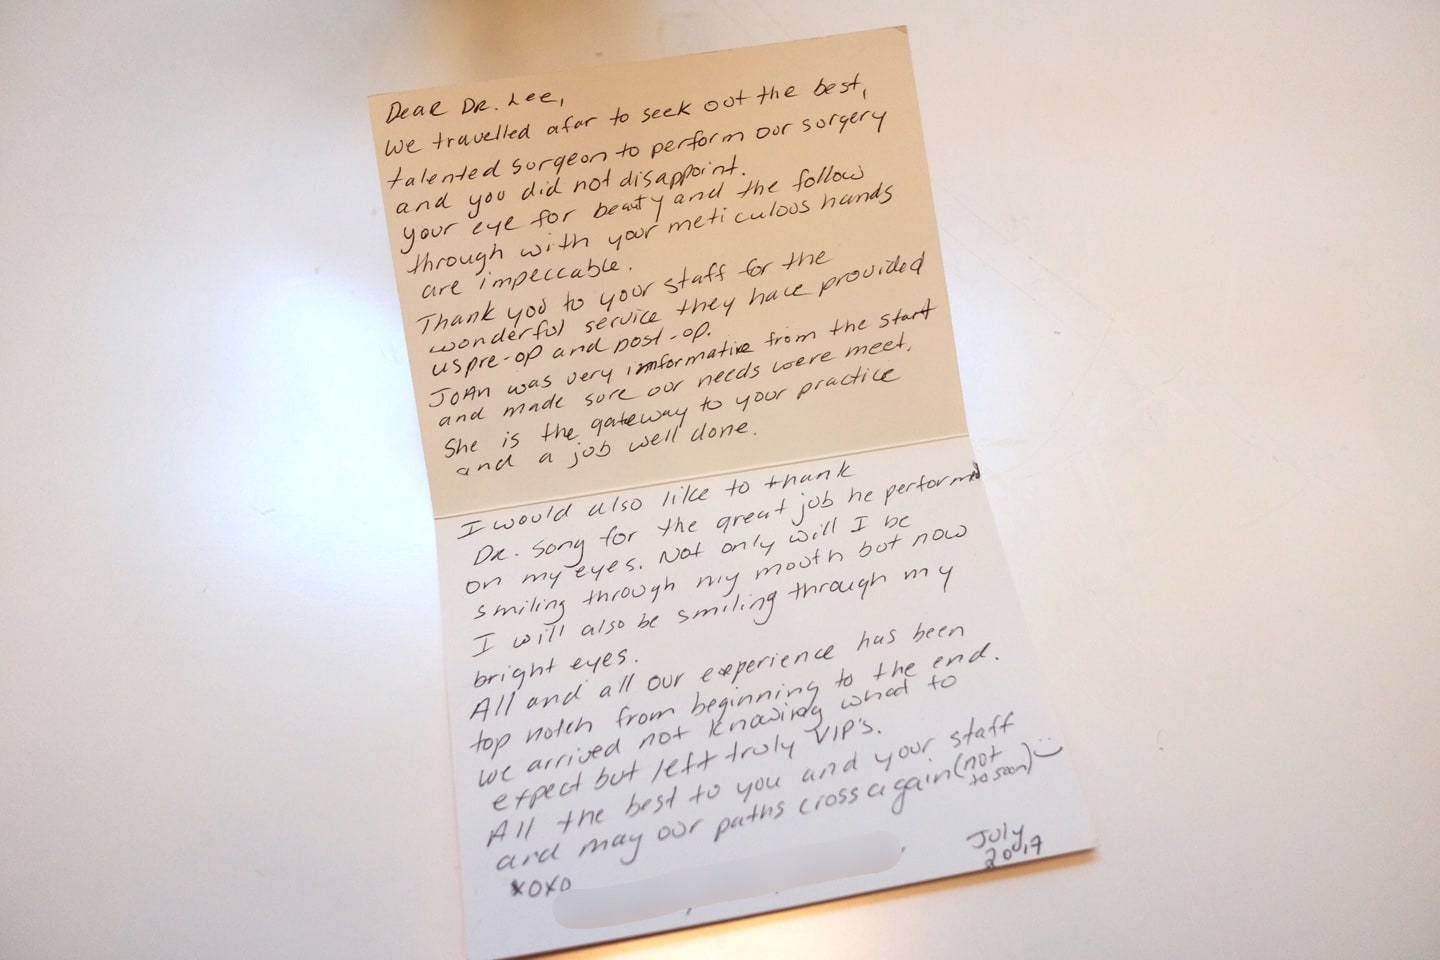 Dear Dr. Lee,
we travelled afar to seek out the best,
talented surgeon to perform our surgery
and you did not disappoint.
your eye for beauty and the follow
through with your meticulous hands
are impeccable.
Thank you to your staff for the
wonderful service they have provided
us pre-op and post-op.
JoAn was very imformative from the start
and made sure our needs were meet.
She is the gateway to your practice
and a job well done.
I would also like to thank
Dr. Song for the great job he performed
on my eyes. Not only will I be
smiling through my mouth but now
I will also be smiling through my
bright eyes.
All and all our experience has been
top notch from beginning to the end.
we arrived not knowing what to
expect but left truly VIP's.
All the best to you and your staff
and may our paths cross again (not
to soon) :)
xoxo
July
2017